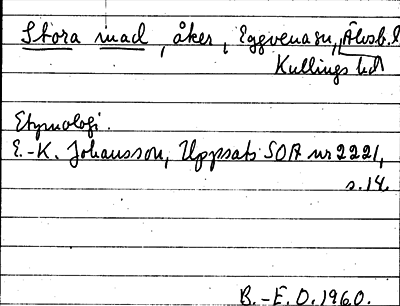 Stora mad, åker, Eggvena sn, Älvsb. l
Kullings hd
Etymologi.
E.-K. Johansson, Uppsats SOA nr 2221,
s. 14.
B.-E. O. 1960.